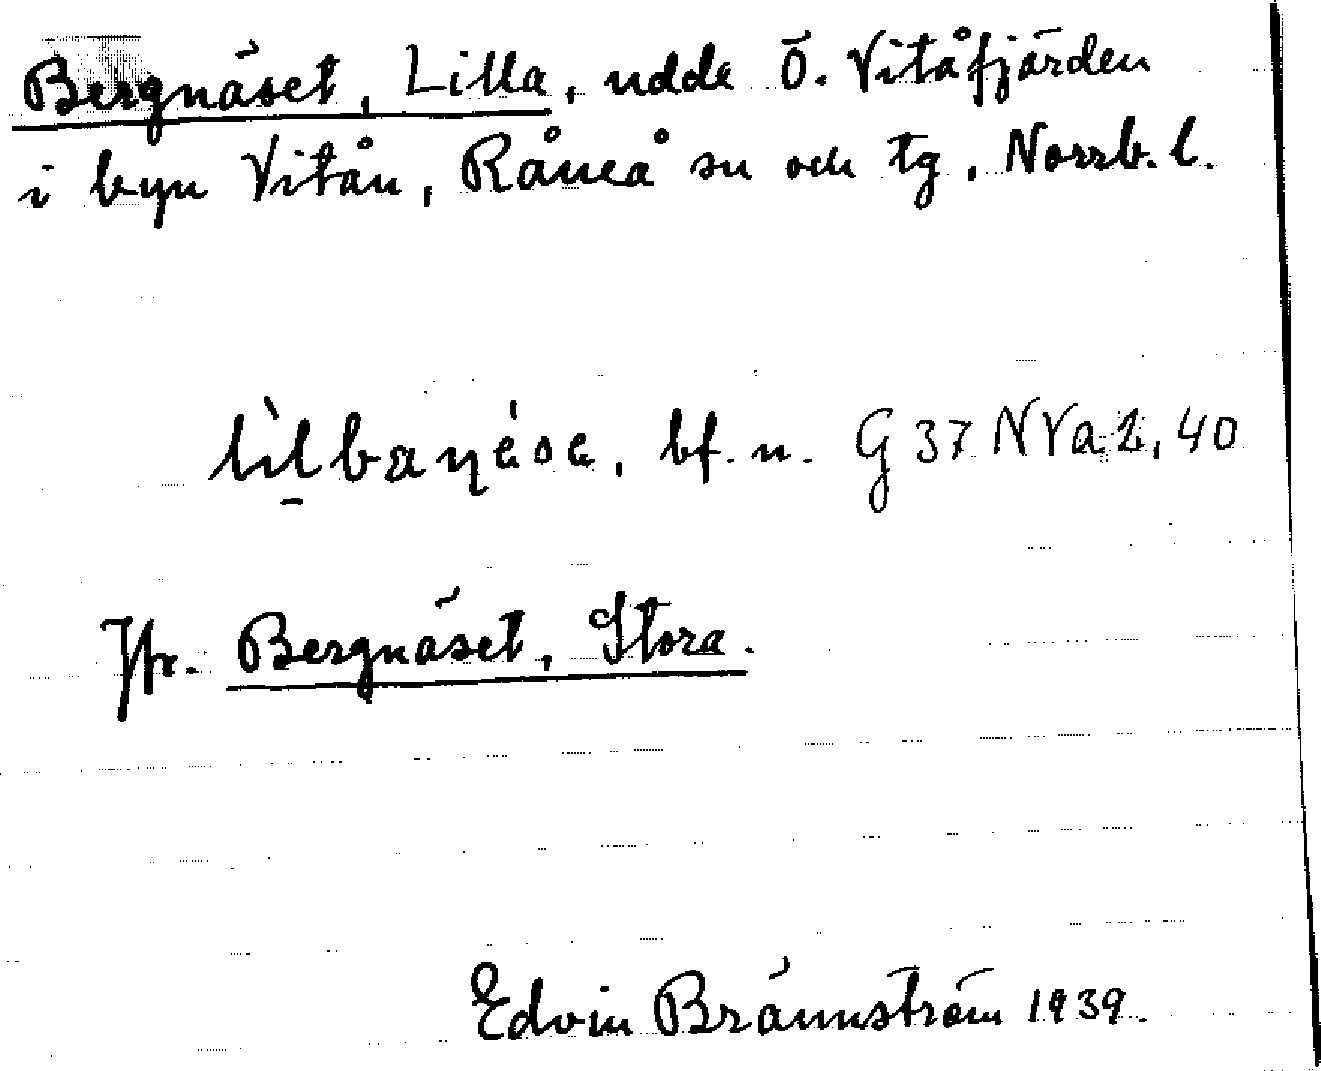 Bergnäset, Lilla, udde Ö. Vitåfjärden
i byn Vitån, Råneå sn och tg, Norrb. l.
bf. n. G 37 N V a 2, 40
Jfr. Bergnäset, Stora.
Edvin Brännström 1939.